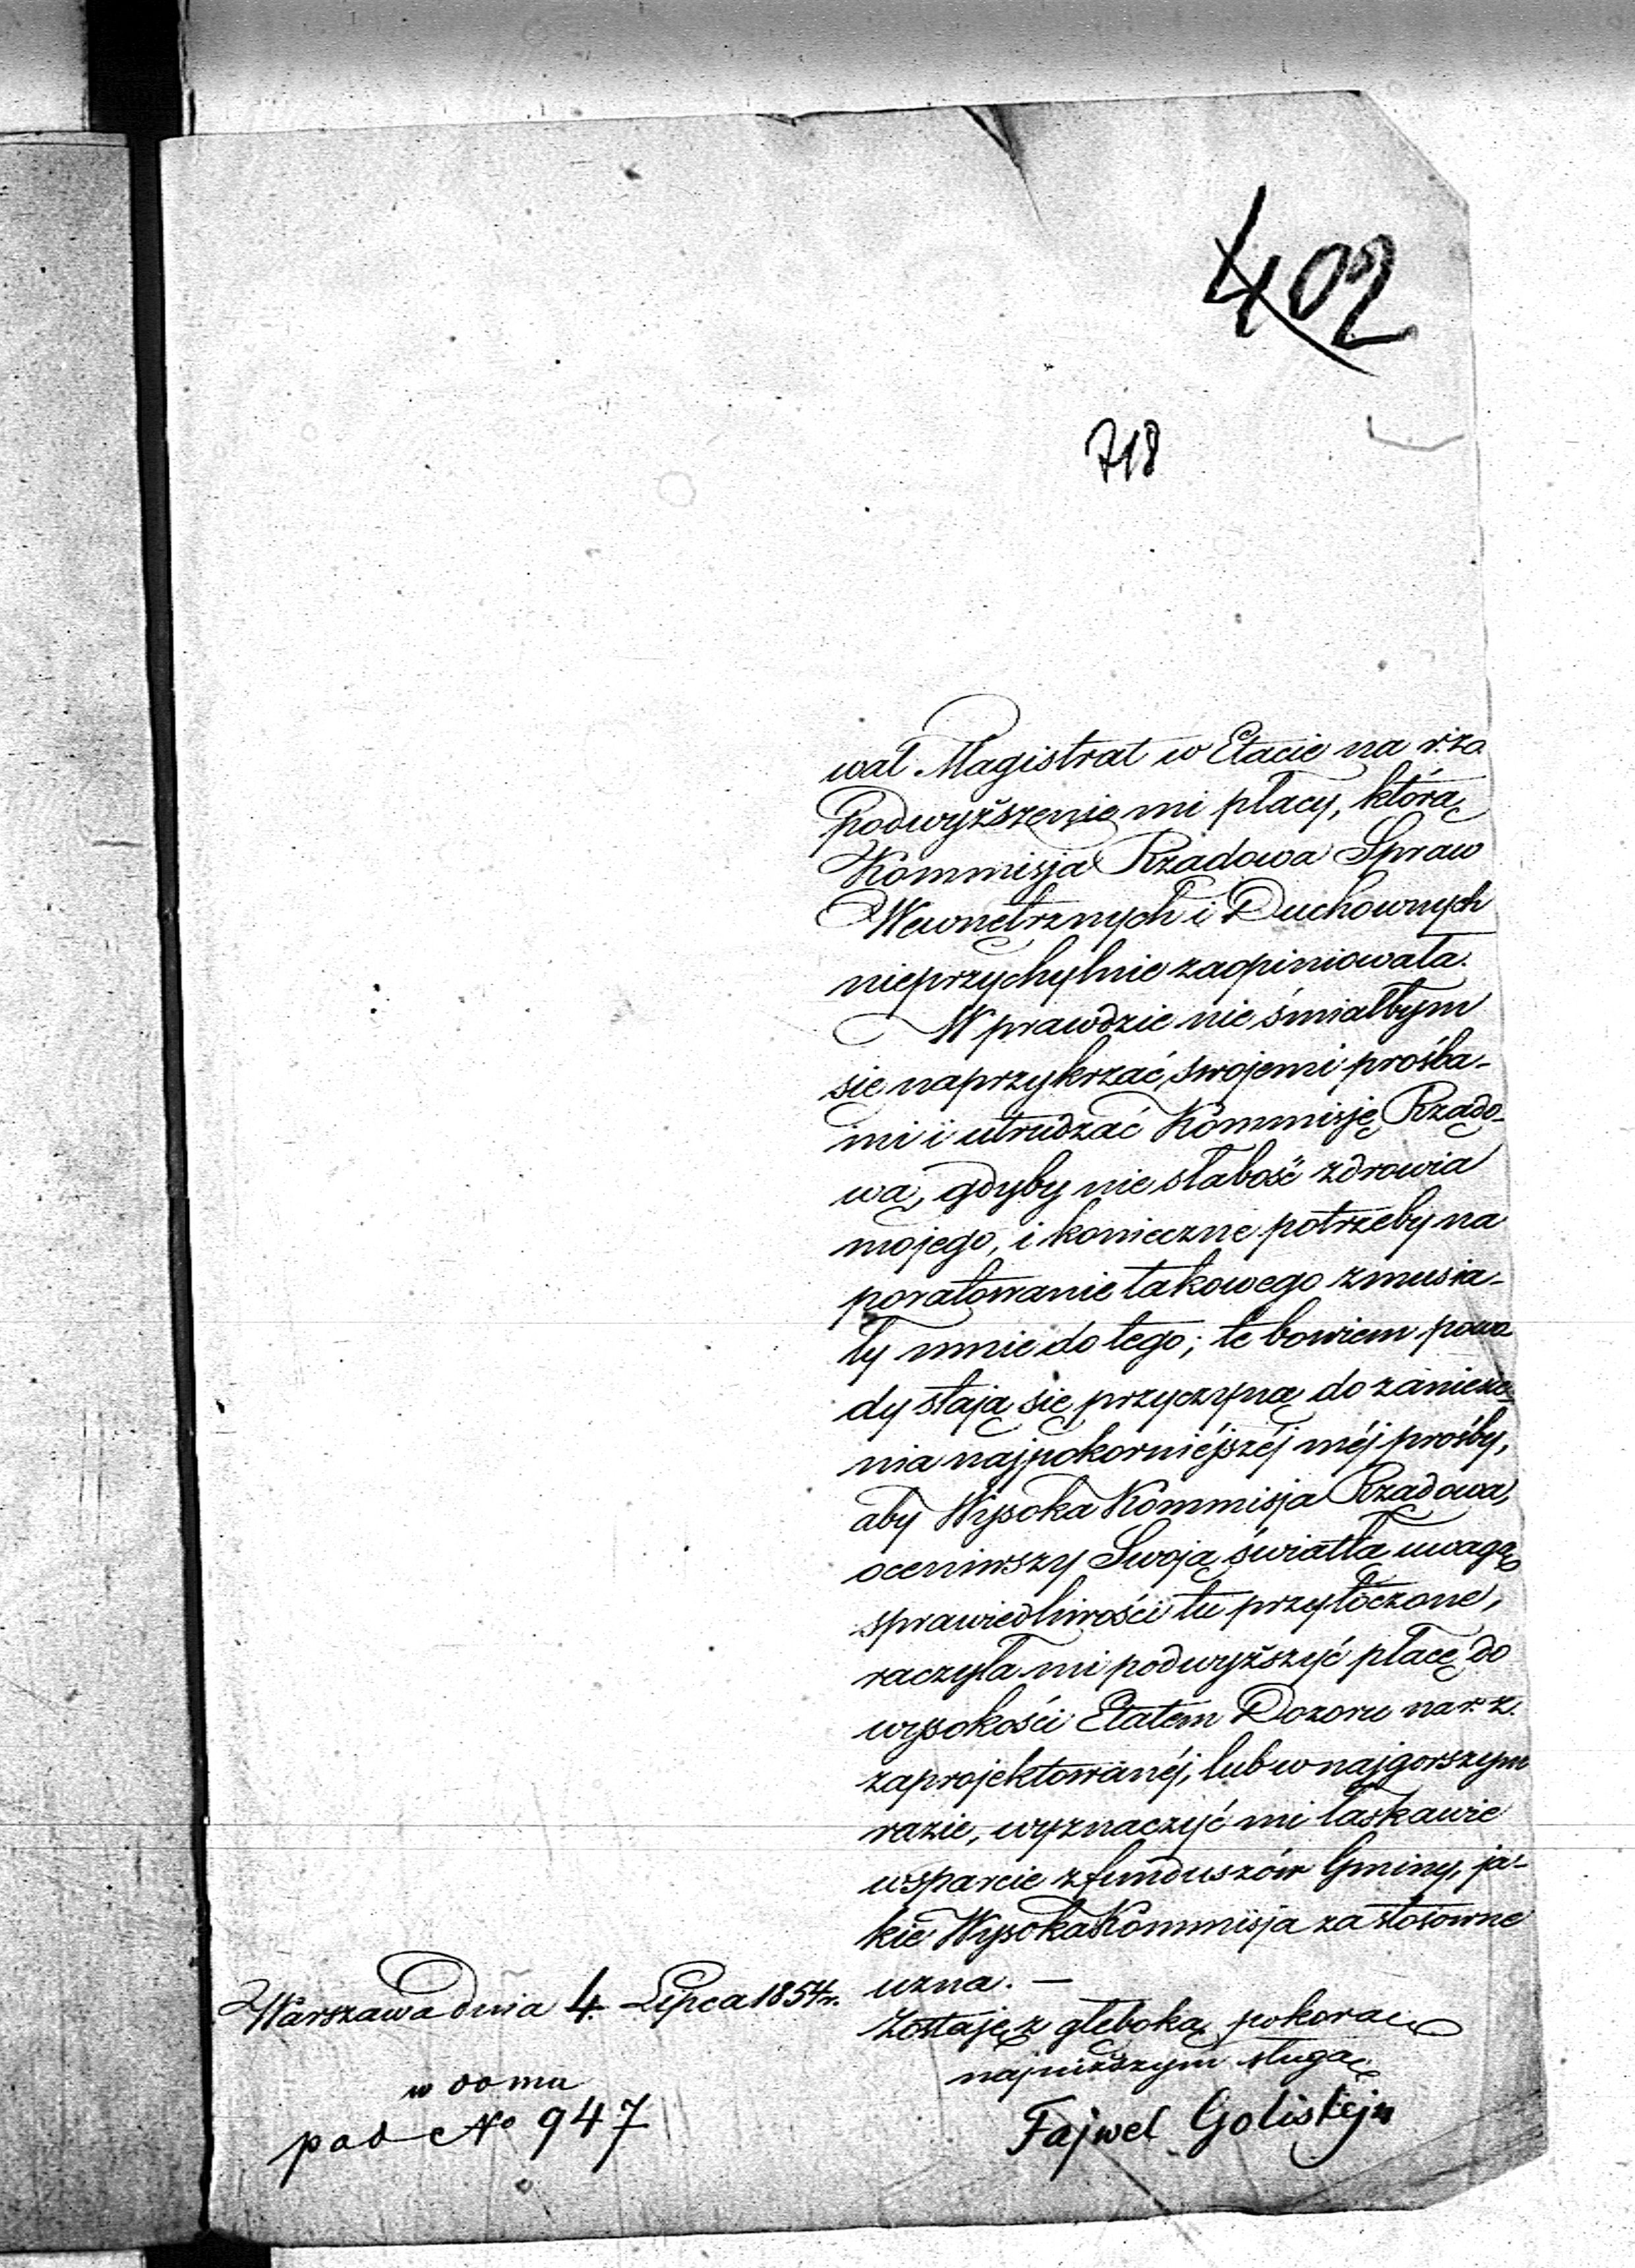 402
718
wał Magistrat w Etacie na r. za.
Podwyższenie mi płacy, którą
Kommisja Rządowa Spraw
Wewnętrznych i Duchownych
nieprzychylnie zaopiniowała.
W prawdzie nie śmiałbym
się naprzykrzać swojemi prośba-
mi i utrudzać Kommisję Rządo-
wą, gdyby nie słabość zdrowia
mojego, i konieczne potrzeby na
poratowanie takowego zmusia-
ły mnie do tego; te bowiem powo
dy stają się przyczyną do zaniesie-
nia najpokorniéjszéj méj prośby,
aby Wysoka Kommisja Rządowa,
oceniwszy Swoją światłą uwagą
sprawiedliwości tu przytoczone,
raczyła mi podwyższyć płacę do
wysokości Etatem Dozoru na r. z.
zaprojektowanéj, lub w najgorszym
razie, wyznaczyć mi łaskawie
wsparcie z funduszów Gminy, ja-
kie Wysoka Kommisja za stosowne
uzna. —
Zostaję z głęboką pokorą
najniższym sługą
Fajwel
Warszawa dnia 4 Lipca 1854 r.
w domu
pod No 947